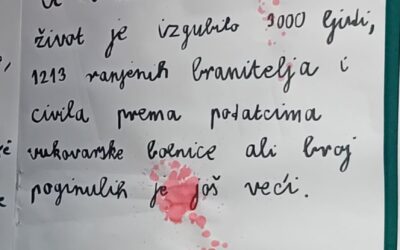 život je izgubilo 3000 ljudi,
1213 ranjenih branitelja i
civila prema podatcima
vukovarske bolnice ali broj
poginulih je još veći.